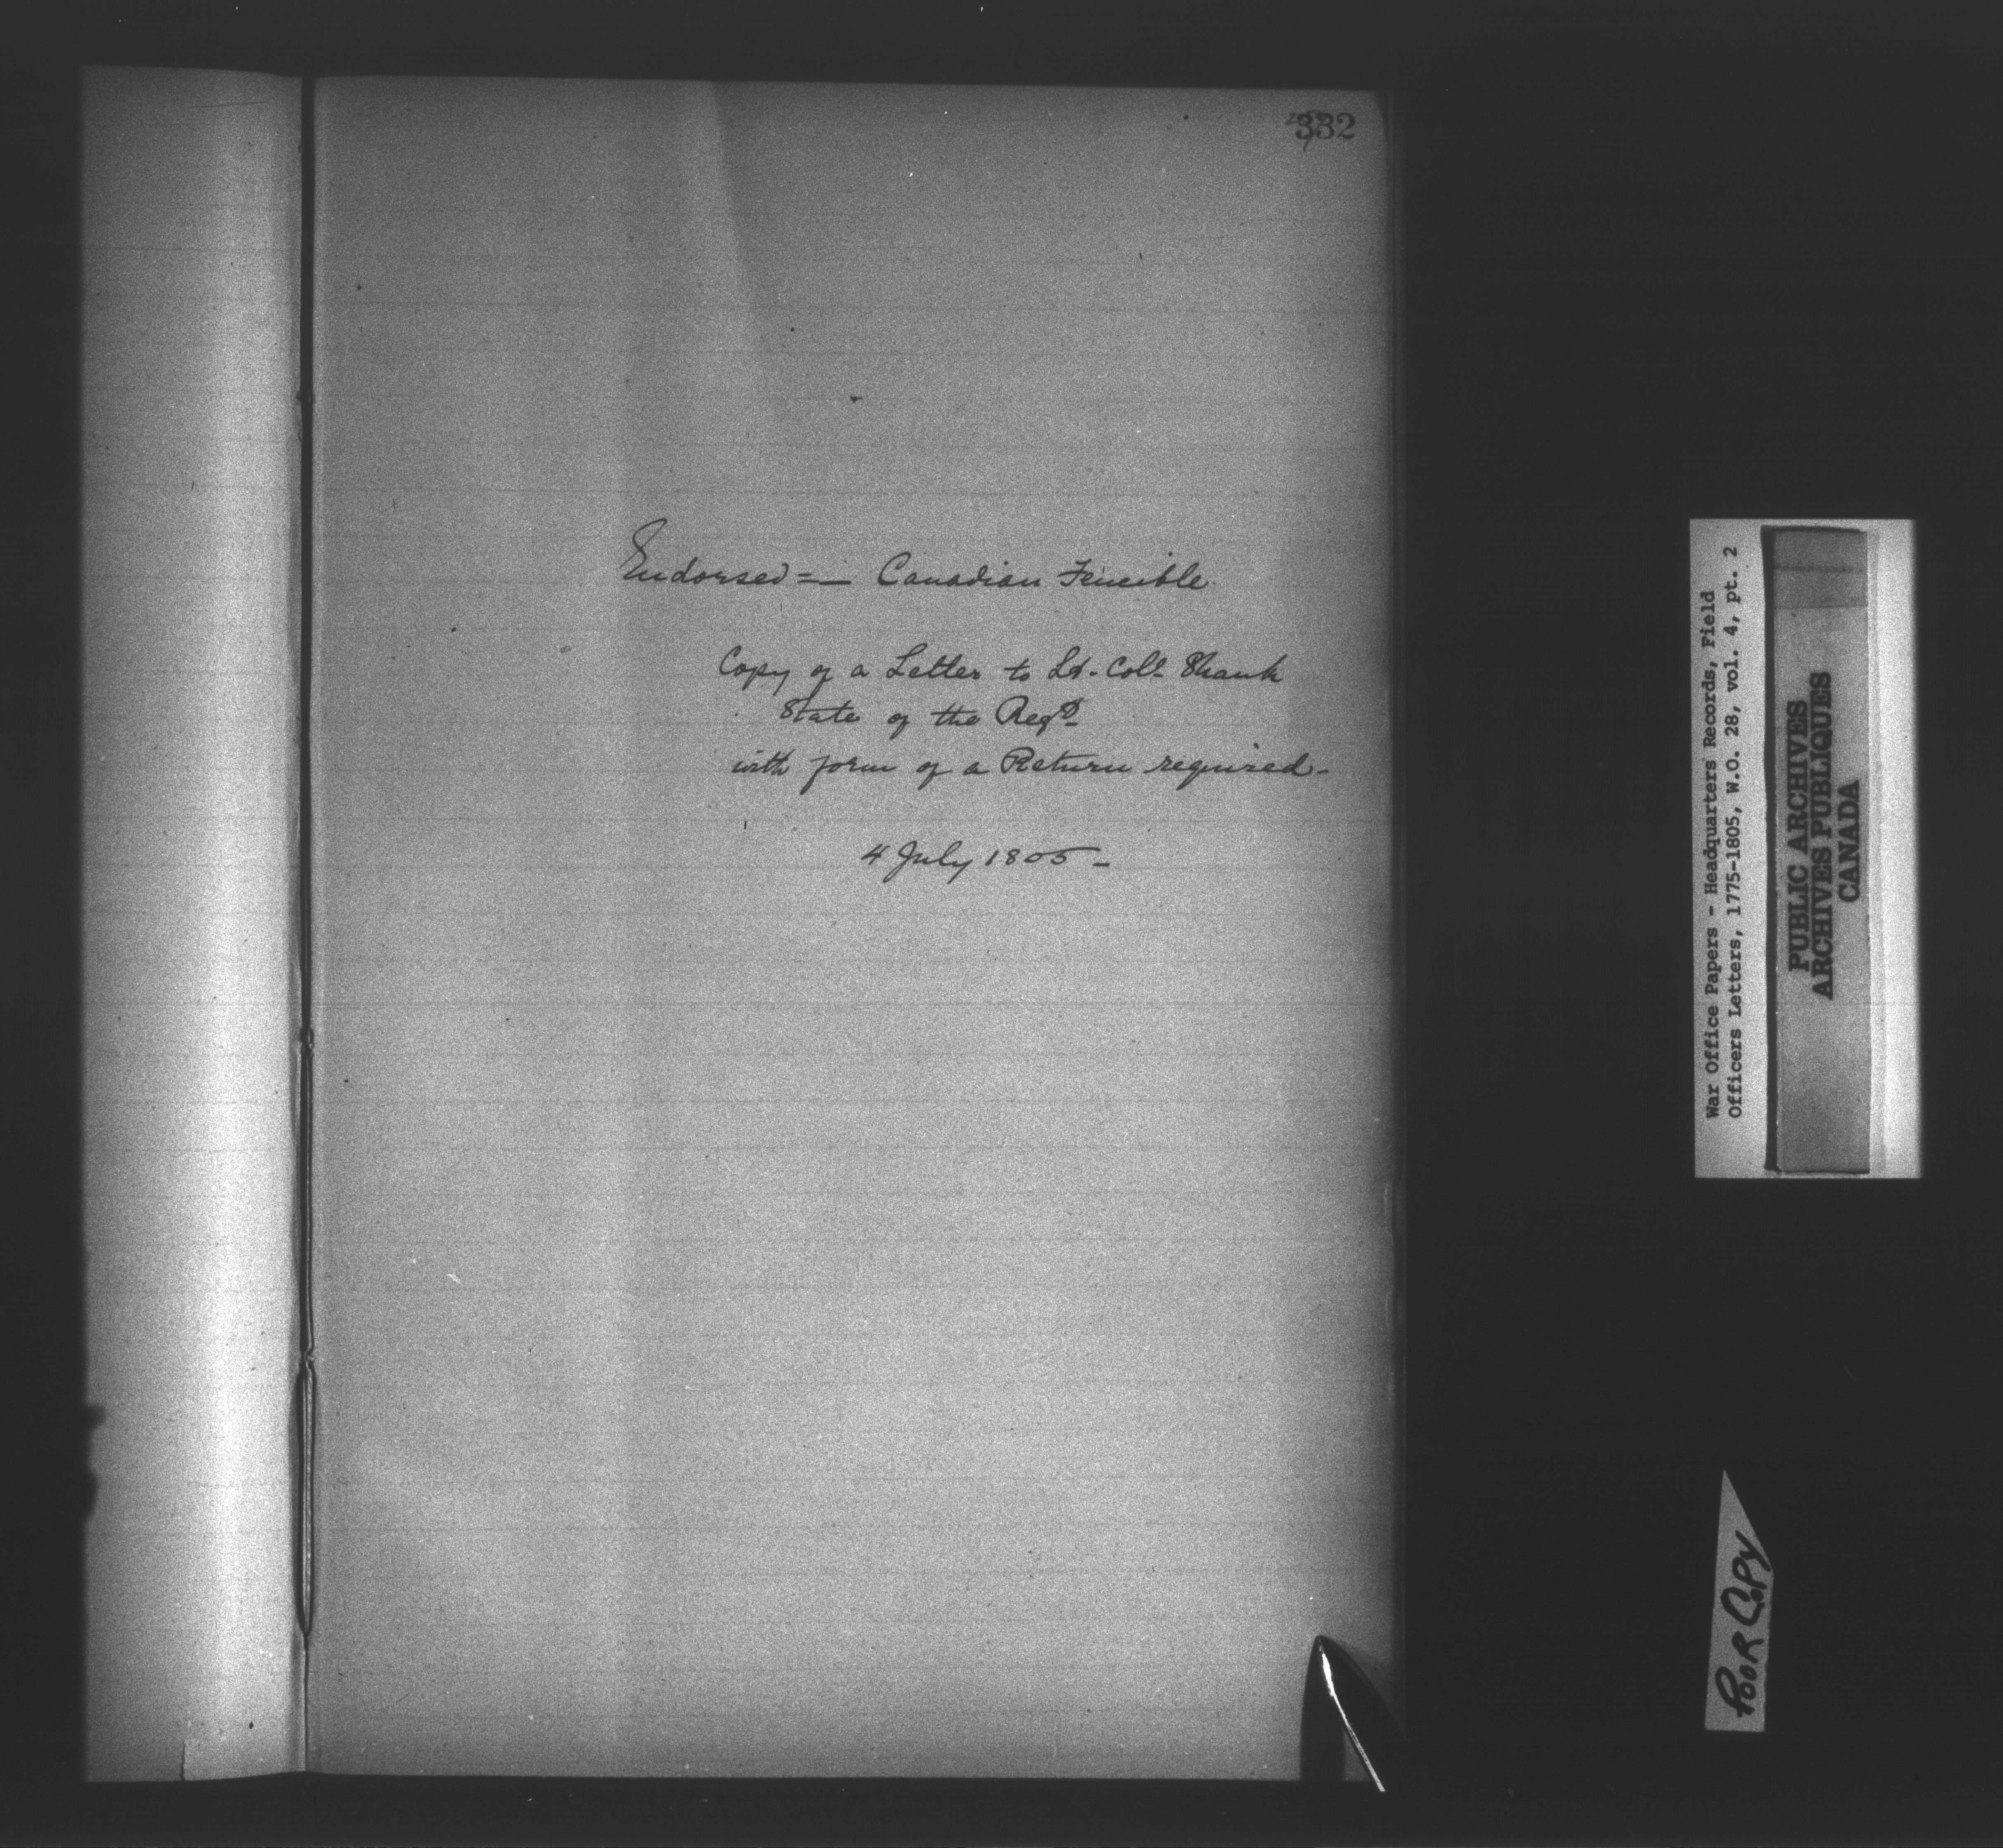 332
Endorsed = — Canadian Fencible
Copy of a Letter to Lt. Coll. Shank
State of the Regt.
with form of a Return required -
4 July 1805 -
War Office Papers - Headquarters Records, Field
Officers Letters, 1775-1805, W.O. 28, vol. 4, pt. 2
PUBLIC ARCHIVES
ARCHIVES PUBLIQUES
CANADA
POOR COPY